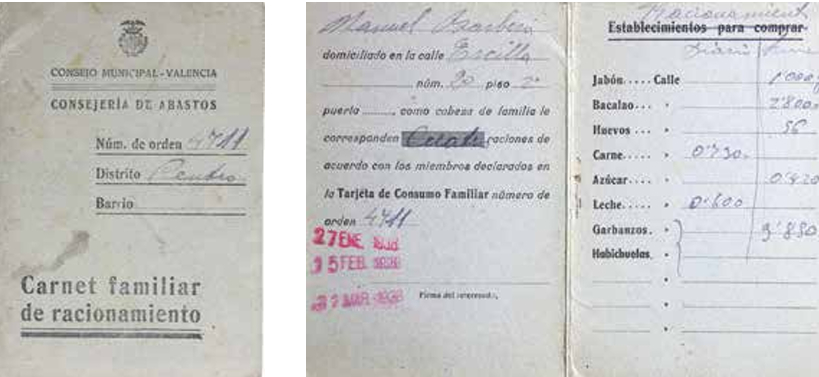 CONSEJO MUNICIPAL - VALENCIA
CONSEJERÍA DE ABASTOS
Núm. de orden 4711
Distrito Centro
Barrio
Carnet familiar
de racionamiento
Manuel
domiciliado en la calle Ercilla
núm. 20 piso 2º
puerta, como cabeza de familia le
corresponden raciones de
acuerdo con los miembros declarados en
la Tarjeta de Consumo Familiar número de
orden 4711
27 ENE.
15 FEB. 1938
MAR. 1938
Firma del interesado,
Racionamiento
Establecimientos para comprar
Diario
Jabón..... Calle 1'000
Bacalao... » 2'800
Huevos ... » 56
Carne..... » 0'730
Azúcar.... » 0'420
Leche..... » 0'600
Garbanzos. » 3'850
Habichuelas. »